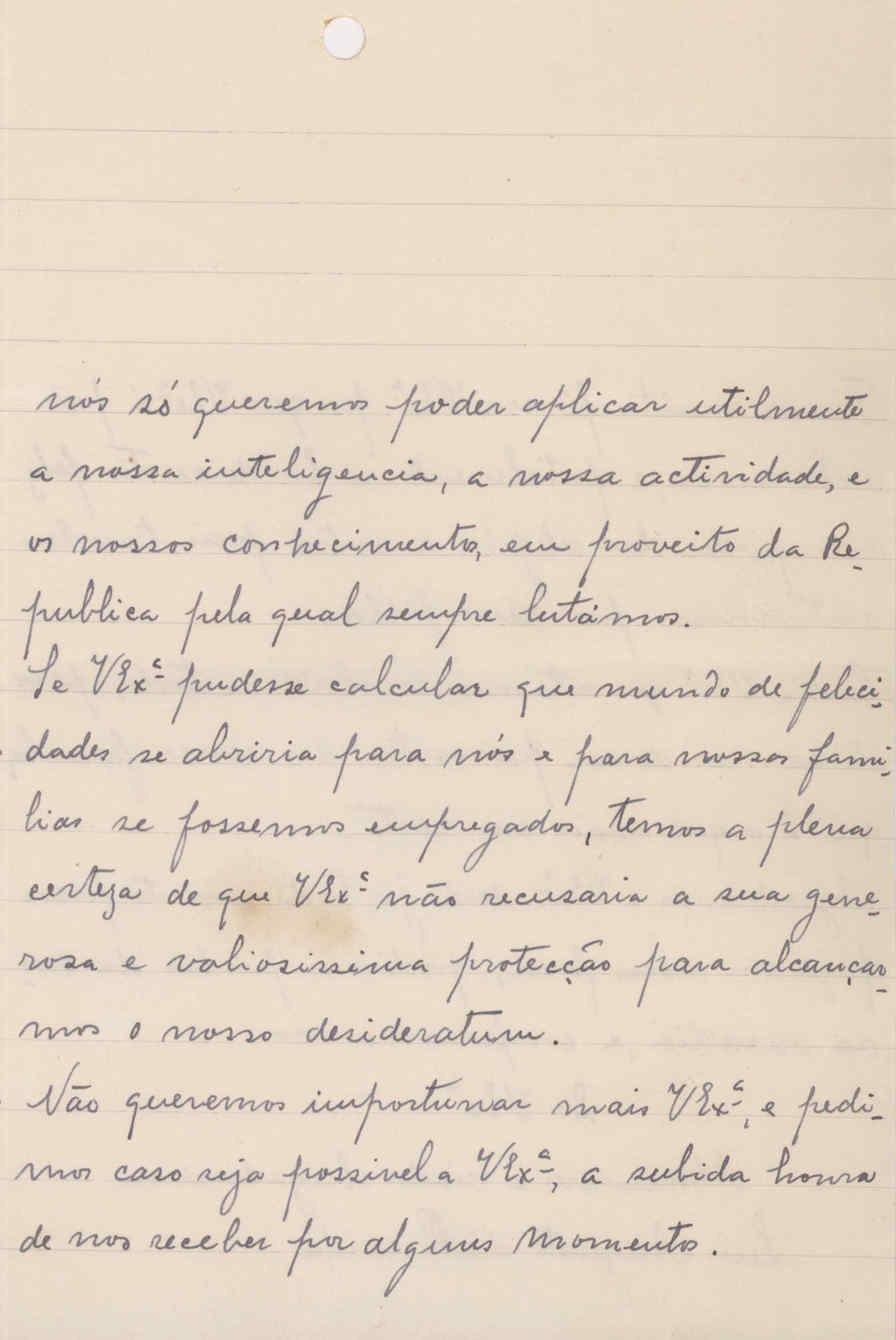 nós só queremos poder aplicar utilmente
a nossa inteligencia, a nossa actividade, e
os nossos conhecimentos, em proveito da Re-
publica pela qual sempre lutámos.
Se VExª pudesse calcular que mundo de feleci-
dades se abriria para nós e para nossas fami-
lias se fossemos empregados, temos a plena
certeza de que VExª não recusaria a sua gene-
rosa e valiosissima protecção para alcançar-
mos o nosso desideratum.
Não queremos importunar mais VExª, e pedi-
mos caso seja possivel a VExª, a subida honra
de nos receber por alguns momentos.